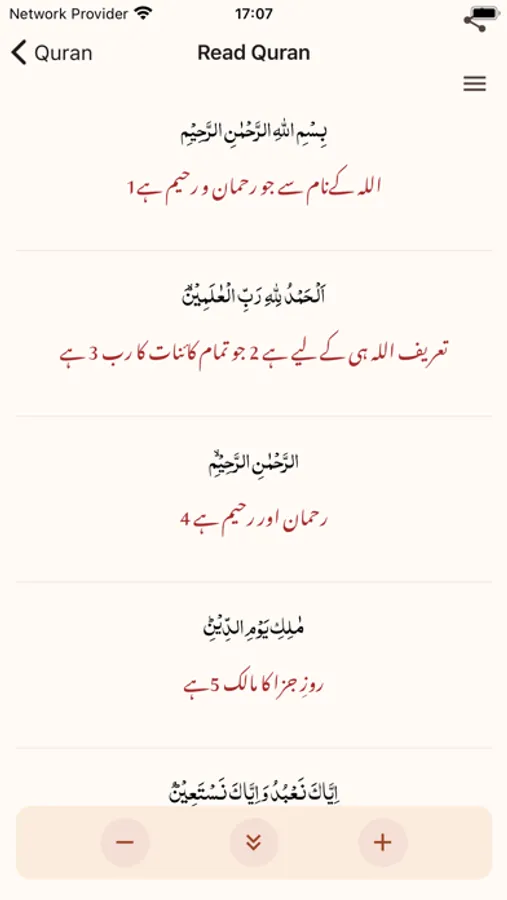 Network Provider 17:07
Quran Read Quran
بِسْمِ اللّٰهِ الرَّحْمٰنِ الرَّحِيْمِ
اللہ کے نام سے جو رحمان و رحیم ہے1
اَلْحَمْدُ لِلّٰهِ رَبِّ الْعٰلَمِيْنَۙ
تعریف اللہ ہی کے لیے ہے 2 جو تمام کائنات کا رب 3 ہے
الرَّحْمٰنِ الرَّحِيْمِۙ
رحمان اور رحیم ہے 4
مٰلِكِ يَوْمِ الدِّيْنِؕ
روزِ جزا کا مالک 5ہے
اِيَّاكَ نَعْبُدُ وَاِيَّاكَ نَسْتَعِيْنُؕ